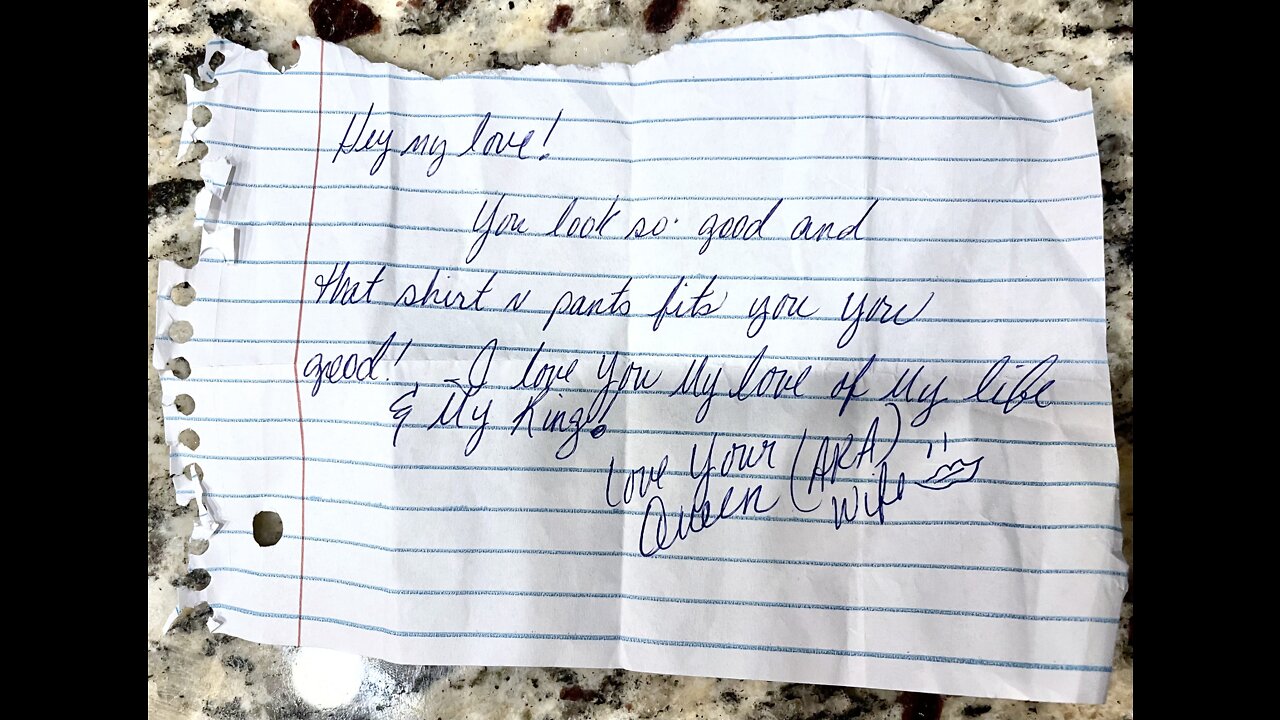 Hey my love!
You look so good and
that shirt n pants fits you you
good! I love you My love of My life
& My King.
Love Your (AKA)
Queen Wife